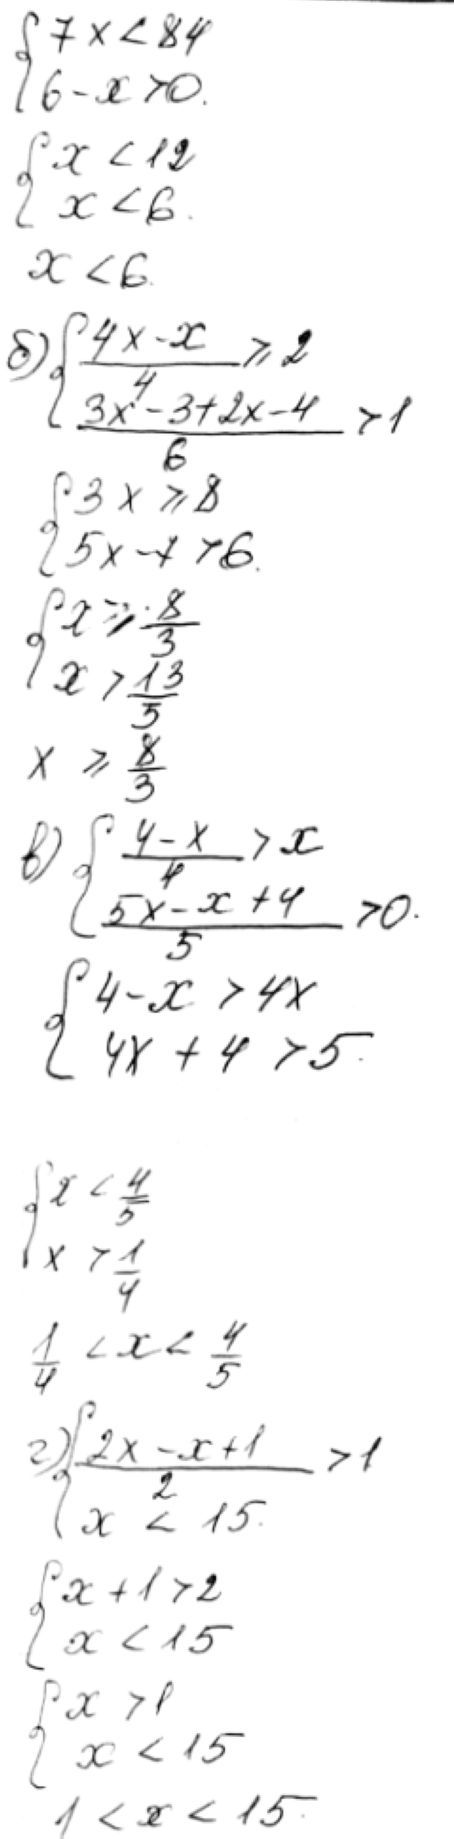 { 7x < 84
6 - x > 0.
{ x < 12
x < 6.
x < 6.
б) { (4x - x)/4 ≥ 2
(3x - 3 + 2x - 4)/6 > 1
{ 3x ≥ 8
5x - 7 > 6.
{ x ≥ 8/3
x > 13/5
x ≥ 8/3
в) { (4 - x)/4 > x
(5x - x + 4)/5 > 0.
{ 4 - x > 4x
4x + 4 > 5.
{ x < 4/5
x > 1/4
1/4 < x < 4/5
г) { (2x - x + 1)/2 > 1
x < 15.
{ x + 1 > 2
x < 15
{ x > 1
x < 15
1 < x < 15.